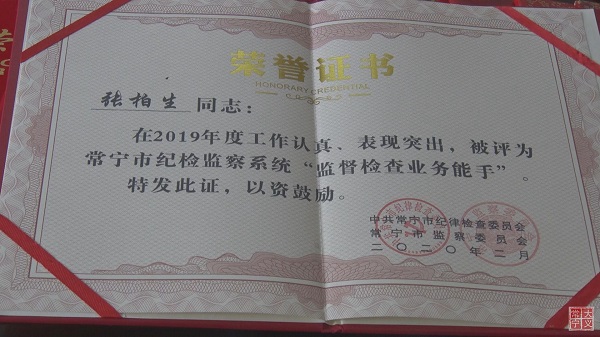 荣誉证书
HONORARY CREDENTIAL
张柏生同志：
在2019年度工作认真、表现突出，被评为
常宁市纪检监察系统“监督检查业务能手”。
特发此证，以资鼓励。
中共常宁市纪律检查委员会
常宁市监察委员会
二〇二〇年二月